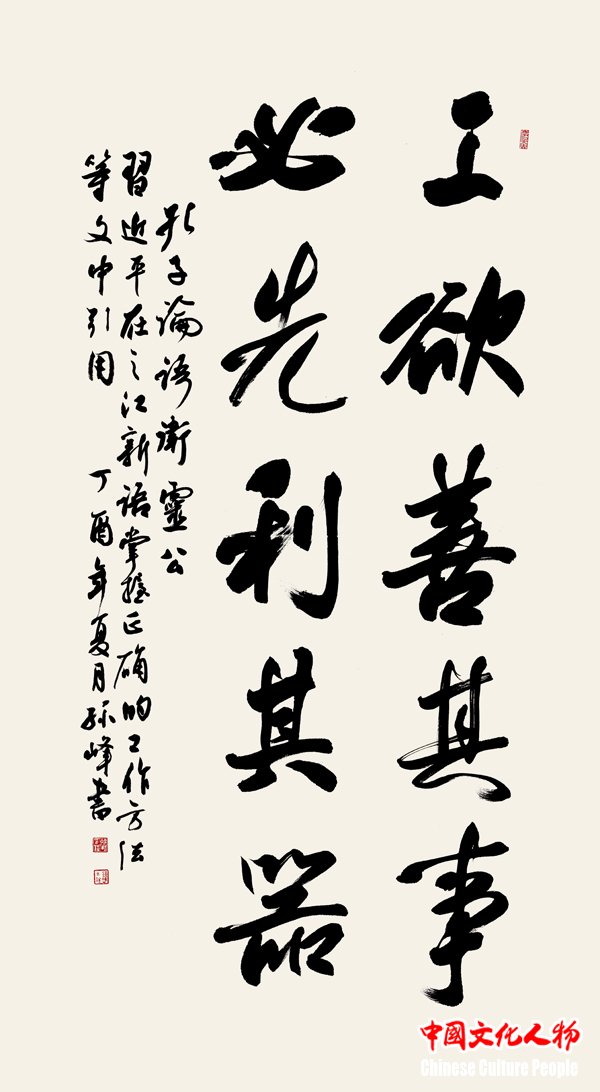 工欲善其事
必先利其器
孔子論语衛靈公
習近平在之江新语掌握正确的工作方法
等文中引用 丁酉年夏月孙峰書
中國文化人物
Chinese Culture People